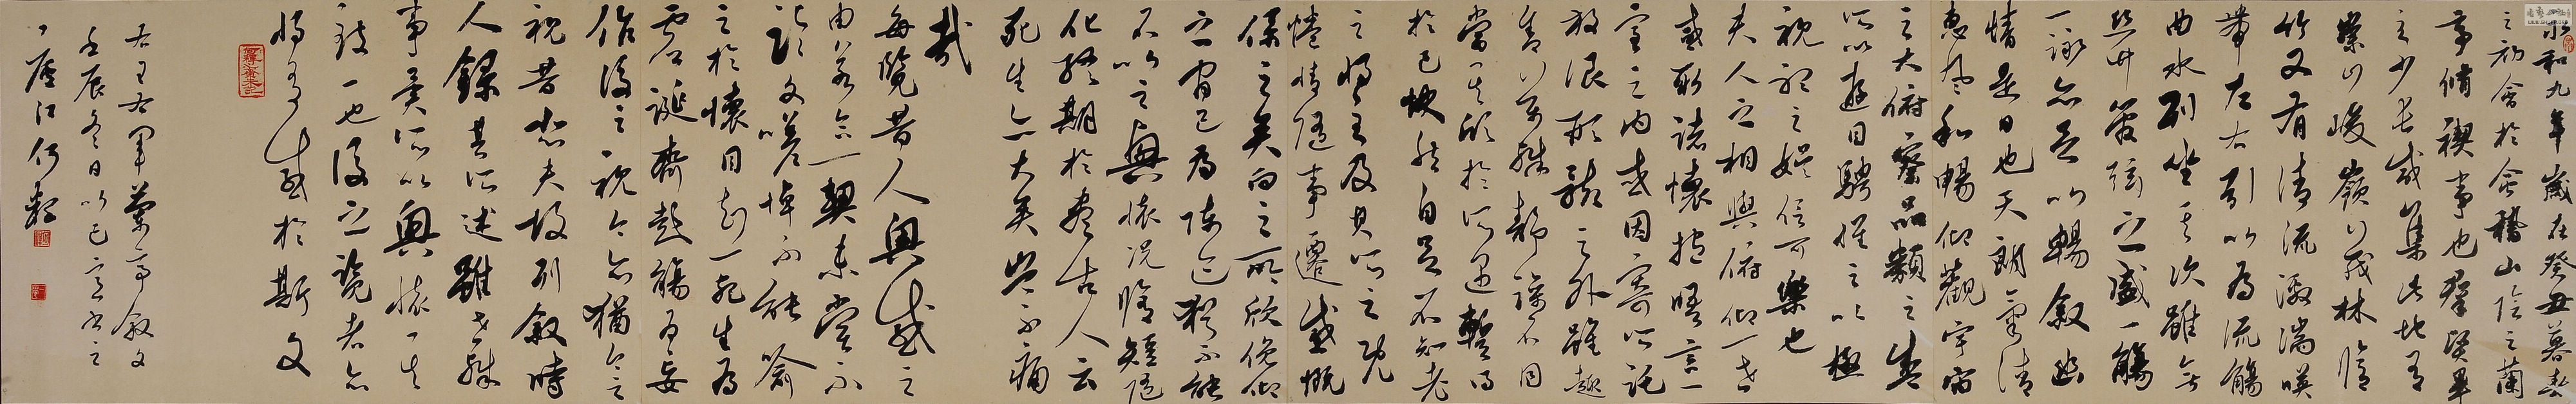 永和九年歲在癸丑暮春
之初會於會稽山陰之蘭
亭脩禊事也群賢畢
至少長咸集此地有
崇山峻嶺茂林脩
竹又有清流激湍映
帶左右引以為流觴
曲水列坐其次雖無
絲竹管弦之盛一觴
一詠亦足以暢敘幽
情是日也天朗氣清
惠風和暢仰觀宇宙
之大俯察品類之盛
所以遊目騁懷足以極
視聽之娛信可樂也
夫人之相與俯仰一世
或取諸懷抱晤言一
室之內或因寄所託
放浪形骸之外雖趣
舍萬殊靜躁不同
當其欣於所遇暫得
於己快然自足不知老
之將至及其所之既
惓情隨事遷感慨
係之矣向之所欣俛仰
之間已為陳迹猶不能
不以之興懷況脩短隨
化終期於盡古人云
死生亦大矣豈不痛
哉
每覽昔人興感之
由若合一契未嘗不
臨文嗟悼不能喻
之於懷固知一死生為
虛誕齊彭殤為妄
作後之視今亦猶今之
視昔悲夫故列敘時
人錄其所述雖世殊
事異所以興懷其
致一也後之覽者亦
將有感於斯文
右王右軍蘭亭敘文
壬辰冬日以己意書之
廬江何